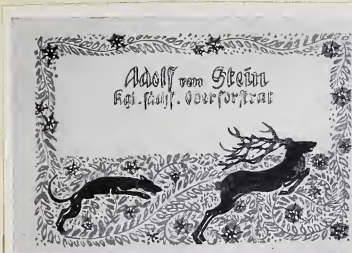 Adolf von Stein
Kgl. sächs. Oberforstrat